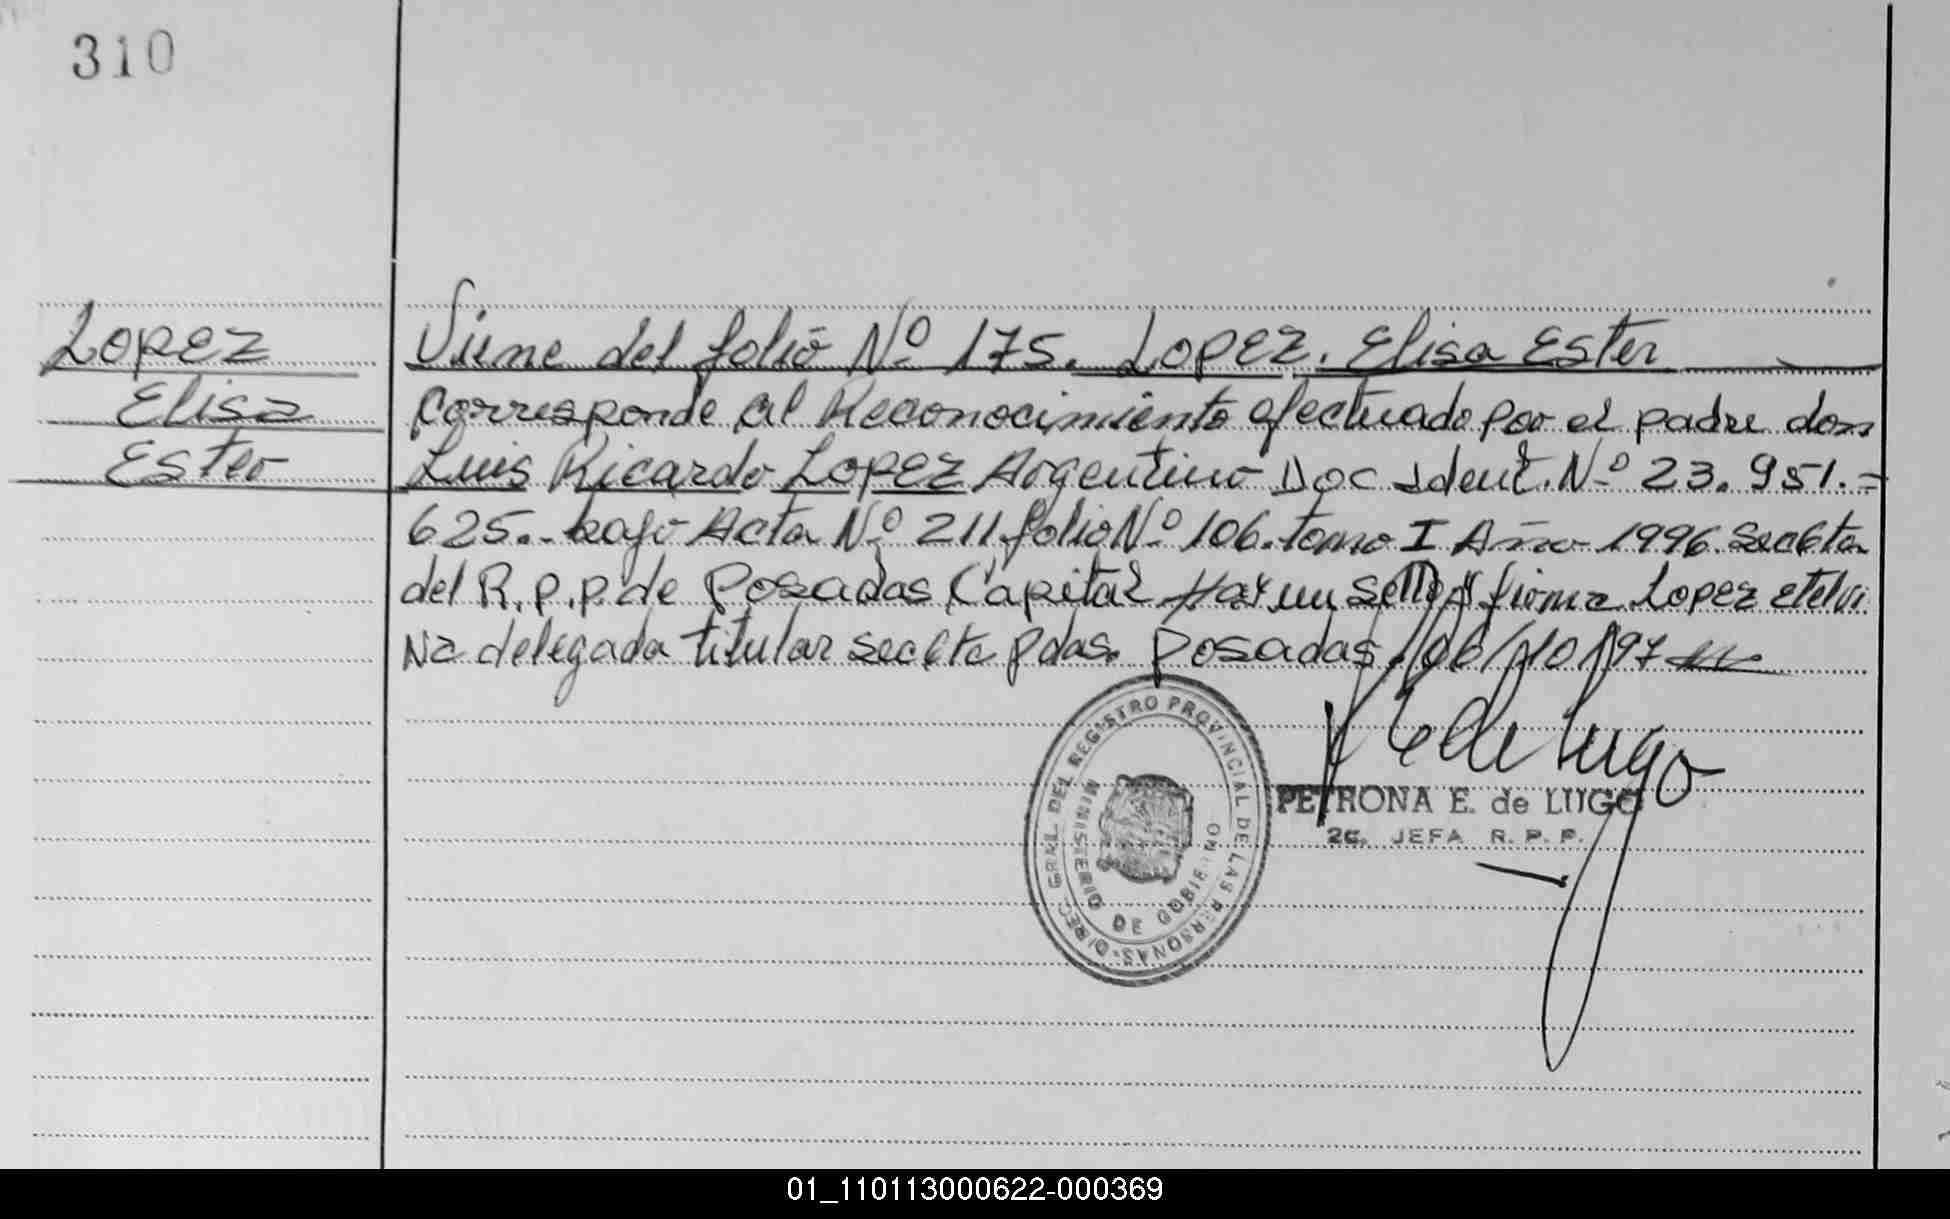 310
Lopez
Elisa
Ester
Viene del folio Nº 175. Lopez. Elisa Ester
Corresponde al Reconocimiento efectuado por el padre don
Luis Ricardo Lopez Argentino Doc Ident. Nº 23.951.=
625.- bajo Acta Nº 211 folio Nº 106. tomo I Año 1996. Secc6ta
del R.p.p. de Posadas Capital Hay un sello y firma Lopez Etelvi
na delegada titular secc6ta Pdas. Posadas, 06/10/97
DIREC. GRAL. DEL REGISTRO PROVINCIAL DE LAS PERSONAS
MINISTERIO DE GOBIERNO
P E de Lugo
PETRONA E. de LUGO
2c. JEFA R. P. P.
01_110113000622-000369